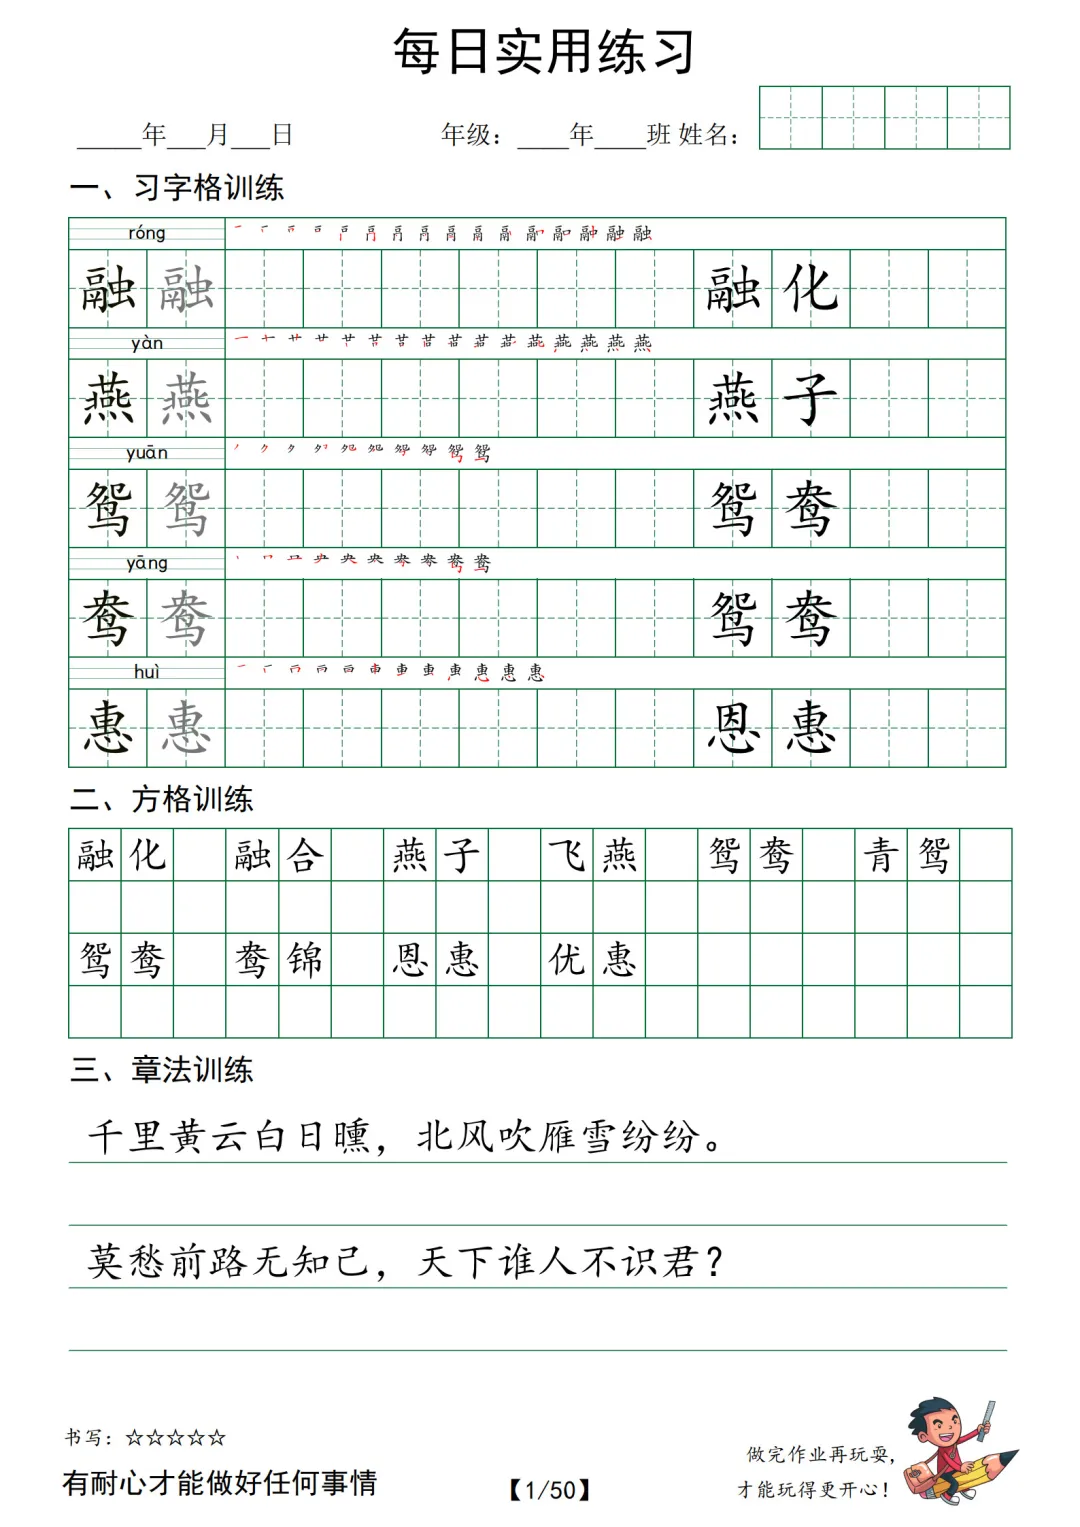 每日实用练习
_____年___月___日 年级：____年____班 姓名：
一、习字格训练
róng
融 融 融 化
yàn
燕 燕 燕 子
yuān
鸳 鸳 鸳 鸯
yāng
鸯 鸯 鸳 鸯
huì
惠 惠 恩 惠
二、方格训练
融化 融合 燕子 飞燕 鸳鸯 青鸳
鸳鸯 鸯锦 恩惠 优惠
三、章法训练
千里黄云白日曛，北风吹雁雪纷纷。
莫愁前路无知己，天下谁人不识君？
书写：☆☆☆☆☆
有耐心才能做好任何事情
【1/50】
做完作业再玩耍，
才能玩得更开心！